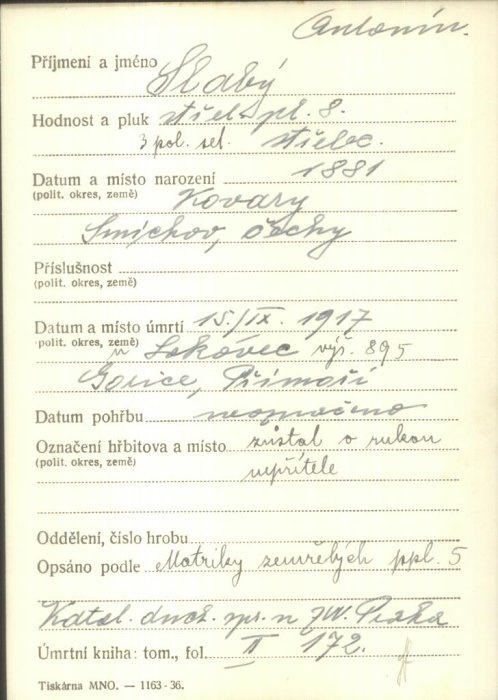 Antonín.
Příjmení a jméno Slabý
Hodnost a pluk střel. pl. 8.
3 pol. set. střelec.
Datum a místo narození 1881
(polit. okres, země) Kovary
Smíchov, Čechy
Příslušnost
(polit. okres, země)
Datum a místo úmrtí 15./IX. 1917
(polit. okres, země) u Lokovec výš. 895
Gorice, Přímoří
Datum pohřbu neoznačeno
Označení hřbitova a místo zůstal v rukou
(polit. okres, země) nepřítele
Oddělení, číslo hrobu
Opsáno podle Matriky zemřelých ppl. 5
Katol. duch. spr. n ZVV. Praha
Úmrtní kniha: tom., fol. II 172.
Tiskárna MNO. — 1163-36.